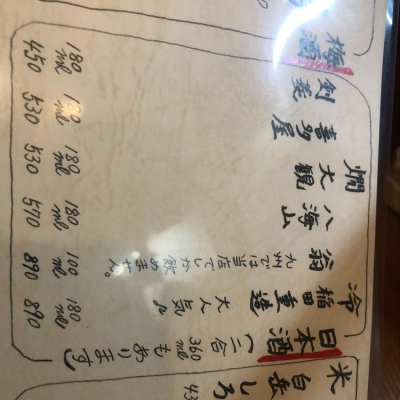 米 白岳しろ
日本酒 (二合360mlもあります)
冷 稲田重造 大人気♪ 180ml 890
翁 九州では当店でしか飲めません。 100ml 890
八海山 180ml 570
燗 大観 180ml 530
喜多屋 180ml 530
剣菱 180ml 450
梅酒